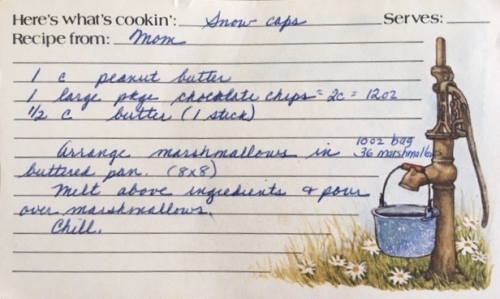 Here's what's cookin': Snow caps Serves:
Recipe from: Mom
1 c peanut butter
1 large pkge chocolate chips = 2c = 12oz
1/2 c butter (1 stick)
10oz bag
Arrange marshmallows in 36 marshmallows
buttered pan. (8x8)
Melt above ingredients & pour
over marshmallows.
Chill.